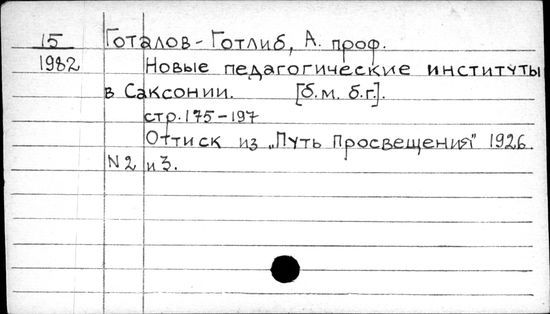 15 Готалов-Готлиб, А. проф.
1982 Новые педагогические институты
в Саксонии. [б.м. б.г].
стр. 175-197
Оттиск из „Путь Просвещения" 1926.
N2 и 3.